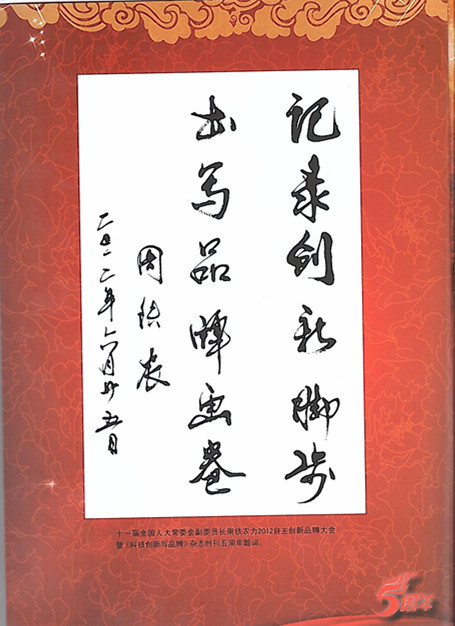 记录创新脚步
书写品牌画卷
周铁农
二〇一二年六月廿五日
十一届全国人大常委会副委员长周铁农为2012自主创新品牌大会
暨《科技创新与品牌》杂志创刊五周年题词。
5周年